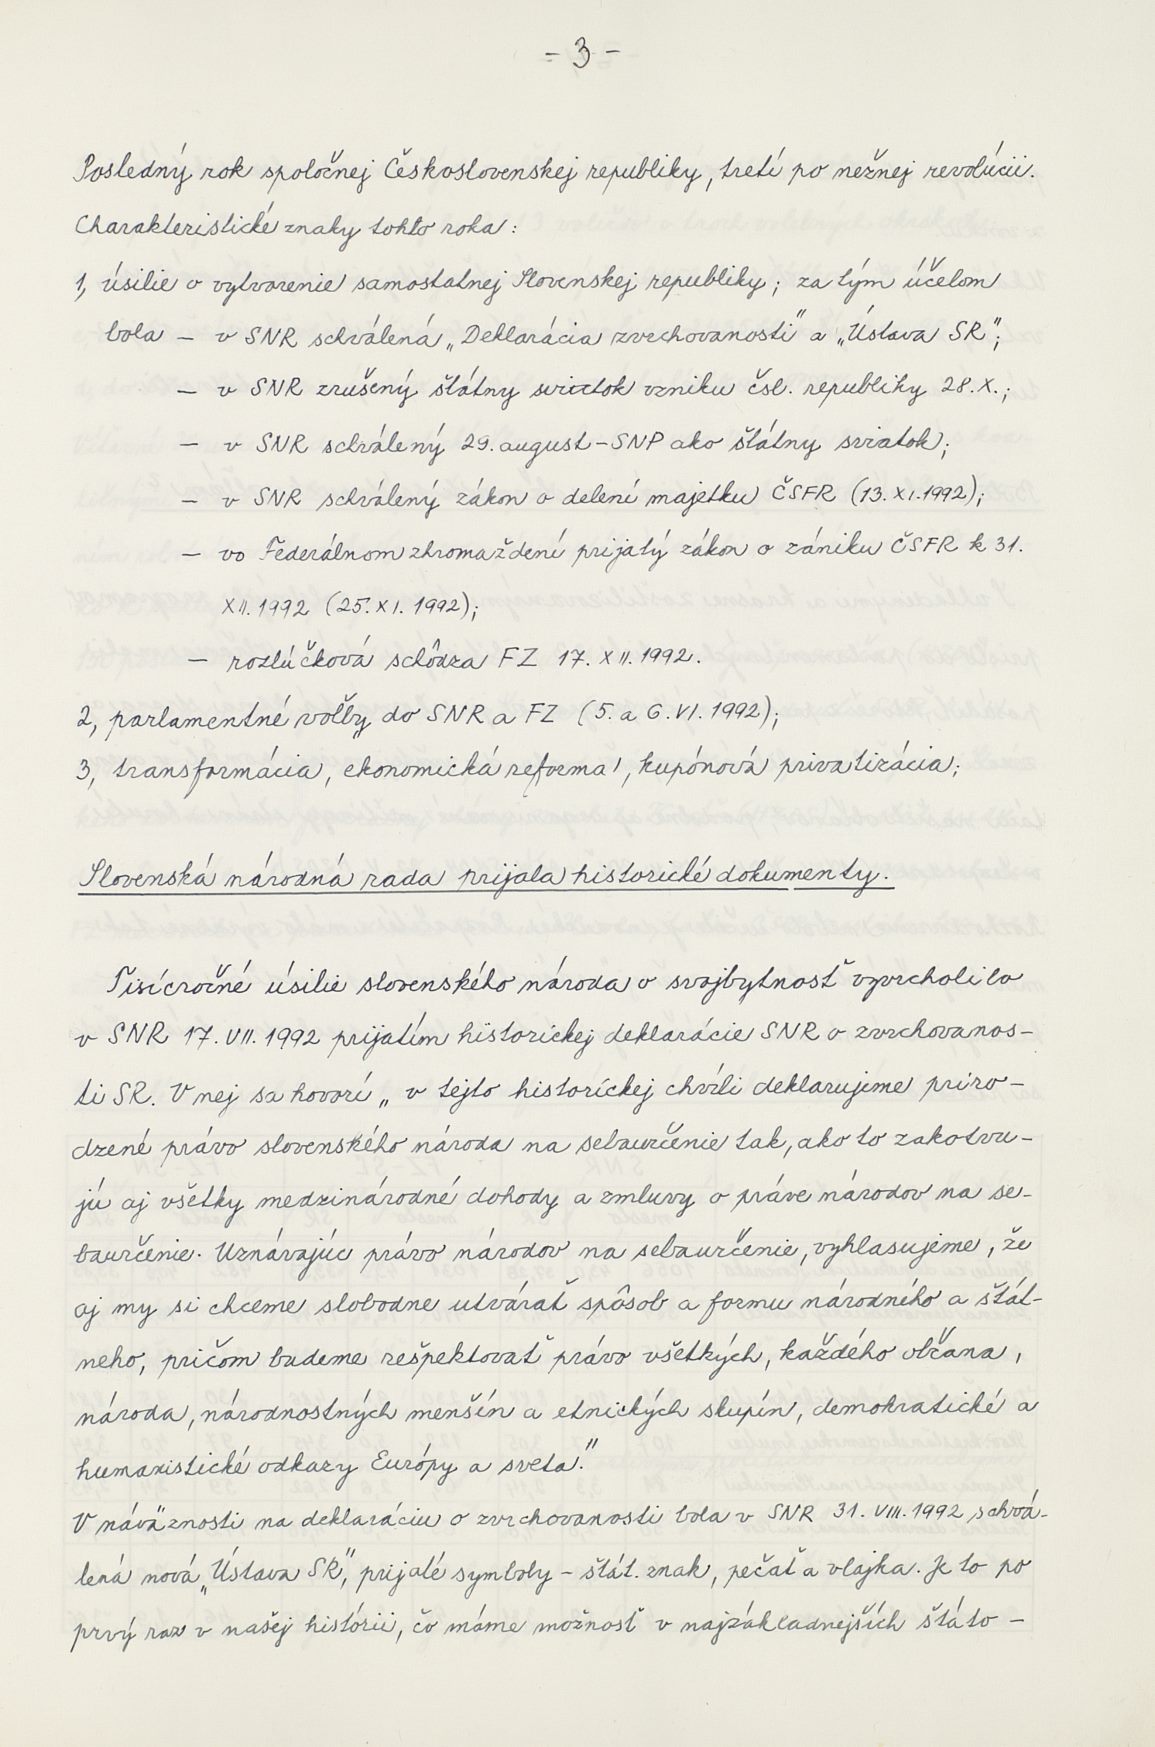 - 3 -
Posledný rok spoločnej Československej republiky, tretí po nežnej revolúcii.
Charakteristické znaky tohto roka:
1, úsilie o vytvorenie samostatnej Slovenskej republiky; za tým účelom
bola — v SNR schválená „Deklarácia zvrchovanosti" a „Ústava SR";
— v SNR zrušený štátny sviatok vzniku čsl. republiky 28.X.;
— v SNR schválený 29. august - SNP ako štátny sviatok;
— v SNR schválený zákon o delení majetku ČSFR (13.XI.1992);
— vo Federálnom zhromaždení prijatý zákon o zániku ČSFR k 31.
XII.1992 (25.XI.1992);
— rozlúčková schôdza FZ 17. XII.1992.
2, parlamentné voľby do SNR a FZ (5. a 6.VI.1992);
3, transformácia, ekonomická reforma, kupónová privatizácia;
Slovenská národná rada prijala historické dokumenty.
Tisícročné úsilie slovenského národa o svojbytnosť vyvrcholilo
v SNR 17. VII. 1992 prijatím historickej deklarácie SNR o zvrchovanos-
ti SR. V nej sa hovorí „ v tejto historickej chvíli deklarujeme priro-
dzené právo slovenského národa na sebaurčenie tak, ako to zakotvu-
jú aj všetky medzinárodné dohody a zmluvy o práve národov na se-
baurčenie. Uznávajúc právo národov na sebaurčenie, vyhlasujeme, že
aj my si chceme slobodne utvárať spôsob a formu národného a štát-
neho, pričom budeme rešpektovať právo všetkých, každého občana,
národa, národnostných menšín a etnických skupín, demokratické a
humanistické odkazy Európy a sveta."
V náväznosti na deklaráciu o zvrchovanosti bola v SNR 31. VIII. 1992 schvá-
lená nová „Ústava SR", prijaté symboly - štát. znak, pečať a vlajka. Je to po
prvý raz v našej histórii, čo máme možnosť v najzákladnejších štáto -